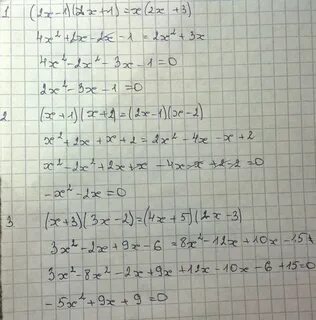 1 (2x-1)(2x+1)=x(2x+3)
4x²+2x-2x-1=2x²+3x
4x²-2x²-3x-1=0
2x²-3x-1=0
2 (x+1)(x+2)=(2x-1)(x-2)
x²+2x+x+2=2x²-4x-x+2
x²-2x²+2x+x-4x-x+2-2=0
-x²-2x=0
3 (x+3)(3x-2)=(4x+5)(2x-3)
3x²-2x+9x-6=8x²-12x+10x-15
3x²-8x²-2x+9x+12x-10x-6+15=0
-5x²+9x+9=0